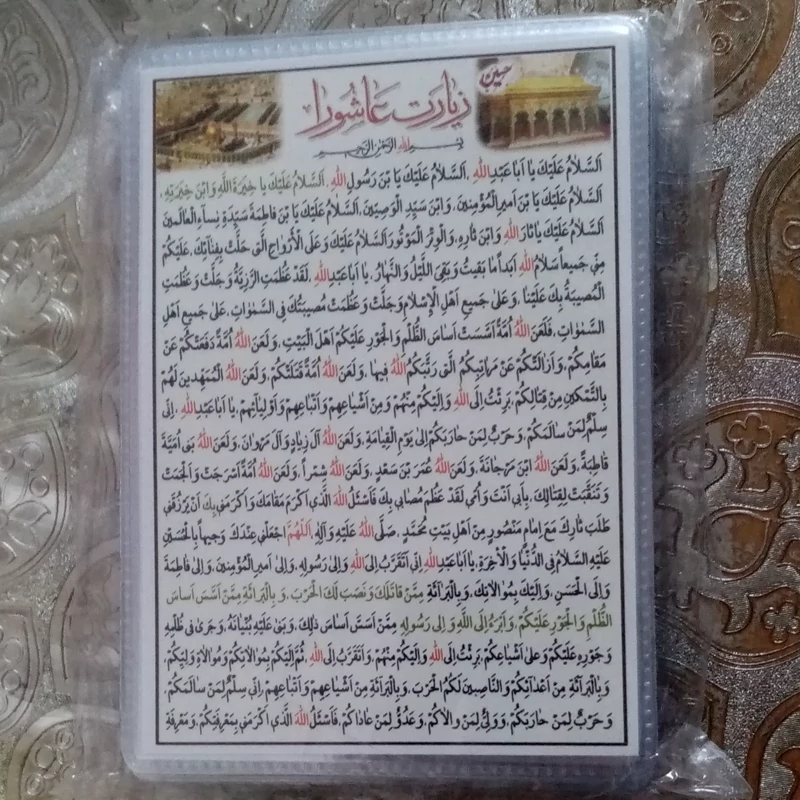 زیارت عاشورا
حسین
بسم الله الرحمن الرحیم
اَلسَّلامُ عَلَيْكَ يا اَبا عَبْدِ اللهِ، اَلسَّلامُ عَلَيْكَ يَا بْنَ رَسُولِ اللهِ، اَلسَّلامُ عَلَيْكَ يا خِيَرَةَ اللَّهِ وَابْنَ خِيَرَتِهِ،
اَلسَّلامُ عَلَيْكَ يَا بْنَ اَميرِ الْمُؤْمِنينَ، وَابْنَ سَيِّدِ الْوَصِيّينَ، اَلسَّلامُ عَلَيْكَ يَا بْنَ فاطِمَةَ سَيِّدَةِ نِساءِ الْعالَمينَ
اَلسَّلامُ عَلَيْكَ يا ثارَ اللهِ وَابْنَ ثارِهِ، وَالْوِتْرَ الْمَوْتُورَ اَلسَّلامُ عَلَيْكَ وَعَلَى الْاَرْواحِ الَّتى حَلَّتْ بِفِنائِكَ، عَلَيْكُمْ
مِنّى جَميعاً سَلامُ اللهِ اَبَداً ما بَقيتُ وَبَقِىَ اللَّيْلُ وَالنَّهارُ، يا اَبا عَبْدِ اللهِ، لَقَدْ عَظُمَتِ الرَّزِيَّةُ وَجَلَّتْ وَعَظُمَتِ
الْمُصيبَةُ بِكَ عَلَيْنا، وَعَلى جَميعِ اَهْلِ الْاِسْلامِ وَجَلَّتْ وَعَظُمَتْ مُصيبَتُكَ فِى السَّمٰواتِ، عَلى جَميعِ اَهْلِ
السَّمٰواتِ، فَلَعَنَ اللهُ اُمَّةً اَسَّسَتْ اَساسَ الظُّلْمِ وَالْجَوْرِ عَلَيْكُمْ اَهْلَ الْبَيْتِ، وَلَعَنَ اللهُ اُمَّةً دَفَعَتْكُمْ عَنْ
مَقامِكُمْ، وَاَزالَتْكُمْ عَنْ مَراتِبِكُمُ الَّتى رَتَّبَكُمُ اللهُ فيها، وَلَعَنَ اللهُ اُمَّةً قَتَلَتْكُمْ، وَلَعَنَ اللهُ الْمُمَهِّدينَ لَهُمْ
بِالتَّمْكينِ مِنْ قِتالِكُمْ، بَرِئْتُ اِلَى اللهِ وَاِلَيْكُمْ مِنْهُمْ وَمِنْ اَشْياعِهِمْ وَاَتْباعِهِمْ وَاَوْلِيائِهِمْ، يا اَبا عَبْدِ اللهِ، اِنّى
سِلْمٌ لِمَنْ سالَمَكُمْ، وَحَرْبٌ لِمَنْ حارَبَكُمْ اِلى يَوْمِ الْقِيامَةِ، وَلَعَنَ اللهُ آلَ زِيادٍ وَآلَ مَرْوانَ، وَلَعَنَ اللهُ بَنى اُمَيَّةَ
قاطِبَةً، وَلَعَنَ اللهُ ابْنَ مَرْجانَةَ، وَلَعَنَ اللهُ عُمَرَ بْنَ سَعْدٍ، وَلَعَنَ اللهُ شِمْراً، وَلَعَنَ اللهُ اُمَّةً اَسْرَجَتْ وَاَلْجَمَتْ
وَتَنَقَّبَتْ لِقِتالِكَ، بِاَبى اَنْتَ وَاُمّى لَقَدْ عَظُمَ مُصابى بِكَ فَاَسْئَلُ اللهَ الَّذى اَكْرَمَ مَقامَكَ وَاَكْرَمَنى بِكَ اَنْ يَرْزُقَنى
طَلَبَ ثارِكَ مَعَ اِمامٍ مَنْصُورٍ مِنْ اَهْلِ بَيْتِ مُحَمَّدٍ، صَلَّى اللهُ عَلَيْهِ وَآلِهِ، اَللّهُمَّ اجْعَلْنى عِنْدَكَ وَجيهاً بِالْحُسَيْنِ
عَلَيْهِ السَّلامُ فِى الدُّنْيا وَالْآخِرَةِ، يا اَبا عَبْدِ اللهِ اِنّى اَتَقَرَّبُ اِلَى اللهِ وَاِلى رَسُولِهِ، وَاِلى اَميرِ الْمُؤْمِنينَ، وَاِلى فاطِمَةَ
وَاِلَى الْحَسَنِ، وَاِلَيْكَ بِمُوالاتِكَ، وَبِالْبَرائَةِ مِمَّنْ قاتَلَكَ وَنَصَبَ لَكَ الْحَرْبَ، وَ بِالْبَرائَةِ مِمَّنْ اَسَّسَ اَساسَ
الظُّلْمِ وَالْجَوْرِ عَلَيْكُمْ، وَاَبْرَءُ اِلَى اللَّهِ وَاِلى رَسُولِهِ مِمَّنْ اَسَّسَ اَساسَ ذلِكَ، وَبَنى عَلَيْهِ بُنْيانَهُ، وَجَرى فى ظُلْمِهِ
وَجَوْرِهِ عَلَيْكُمْ وَعَلى اَشْياعِكُمْ، بَرِئْتُ اِلَى اللهِ وَاِلَيْكُمْ مِنْهُمْ، وَاَتَقَرَّبُ اِلَى اللهِ، ثُمَّ اِلَيْكُمْ بِمُوالاتِكُمْ وَمُوالاةِ وَلِيِّكُمْ،
وَبِالْبَرائَةِ مِنْ اَعْدائِكُمْ وَالنّاصِبينَ لَكُمُ الْحَرْبَ، وَبِالْبَرائَةِ مِنْ اَشْياعِهِمْ وَاَتْباعِهِمْ، اِنّى سِلْمٌ لِمَنْ سالَمَكُمْ،
وَحَرْبٌ لِمَنْ حارَبَكُمْ، وَوَلِىٌّ لِمَنْ والاكُمْ، وَعَدُوٌّ لِمَنْ عاداكُمْ، فَاَسْئَلُ اللهَ الَّذى اَكْرَمَنى بِمَعْرِفَتِكُمْ، وَمَعْرِفَةِ